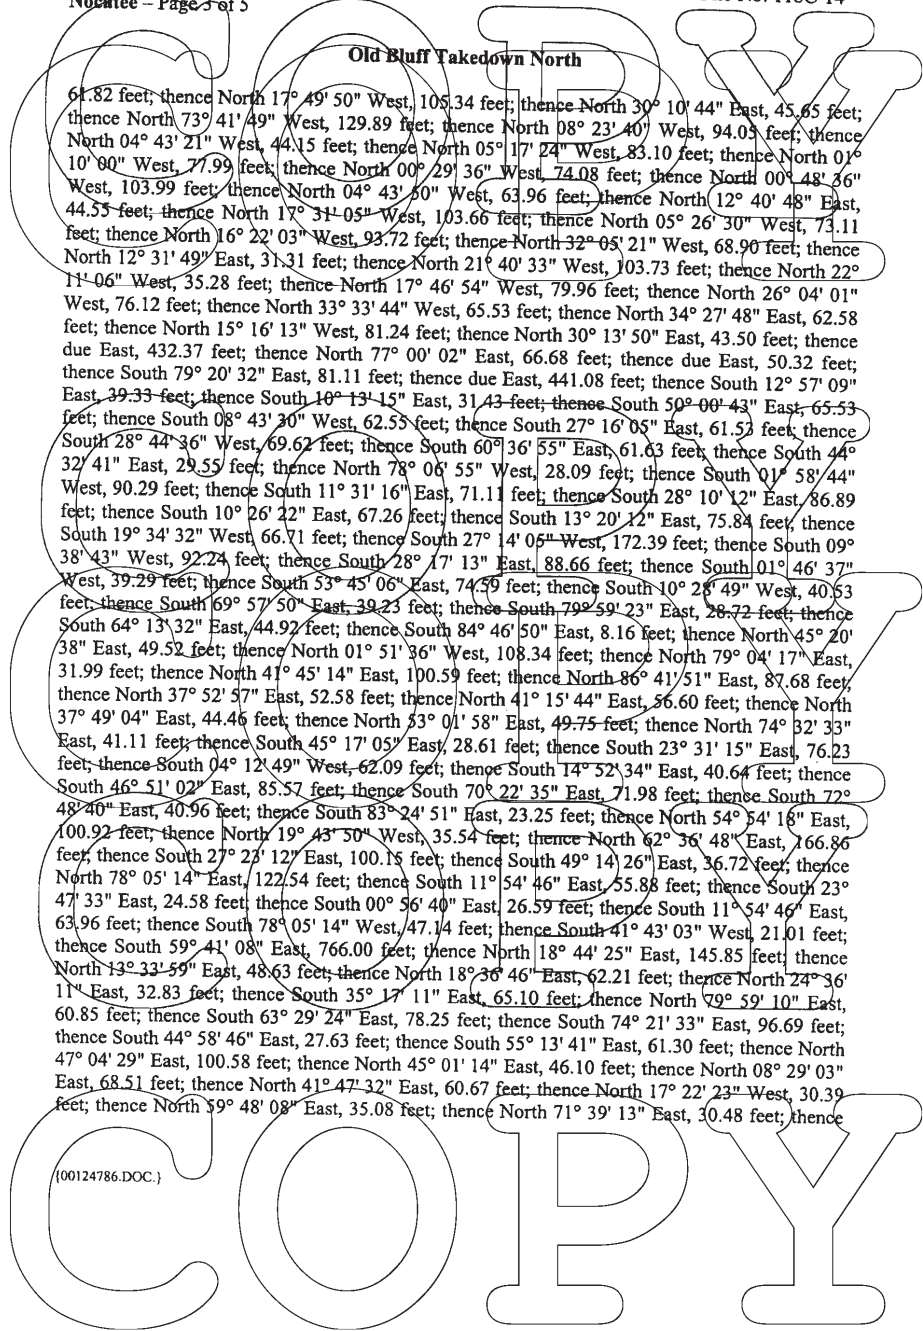 Nocatee – Page 3 of 5
COPY
Old Bluff Takedown North
61.82 feet; thence North 17° 49' 50" West, 105.34 feet; thence North 30° 10' 44" East, 45.65 feet;
thence North 73° 41' 49" West, 129.89 feet; thence North 08° 23' 40" West, 94.05 feet; thence
North 04° 43' 21" West, 44.15 feet; thence North 05° 17' 24" West, 83.10 feet; thence North 01°
10' 00" West, 77.99 feet; thence North 00° 29' 36" West, 74.08 feet; thence North 00° 48' 36"
West, 103.99 feet; thence North 04° 43' 50" West, 63.96 feet; thence North 12° 40' 48" East,
44.55 feet; thence North 17° 31' 05" West, 103.66 feet; thence North 05° 26' 30" West, 73.11
feet; thence North 16° 22' 03" West, 93.72 feet; thence North 32° 05' 21" West, 68.90 feet; thence
North 12° 31' 49" East, 31.31 feet; thence North 21° 40' 33" West, 103.73 feet; thence North 22°
11' 06" West, 35.28 feet; thence North 17° 46' 54" West, 79.96 feet; thence North 26° 04' 01"
West, 76.12 feet; thence North 33° 33' 44" West, 65.53 feet; thence North 34° 27' 48" East, 62.58
feet; thence North 15° 16' 13" West, 81.24 feet; thence North 30° 13' 50" East, 43.50 feet; thence
due East, 432.37 feet; thence North 77° 00' 02" East, 66.68 feet; thence due East, 50.32 feet;
thence South 79° 20' 32" East, 81.11 feet; thence due East, 441.08 feet; thence South 12° 57' 09"
East, 39.33 feet; thence South 10° 13' 15" East, 31.43 feet; thence South 50° 00' 43" East, 65.53
feet; thence South 08° 43' 30" West, 62.55 feet; thence South 27° 16' 05" East, 61.53 feet; thence
South 28° 44' 36" West, 69.62 feet; thence South 60° 36' 55" East, 61.63 feet; thence South 44°
32' 41" East, 29.55 feet; thence North 78° 06' 55" West, 28.09 feet; thence South 01° 58' 44"
West, 90.29 feet; thence South 11° 31' 16" East, 71.11 feet; thence South 28° 10' 12" East, 86.89
feet; thence South 10° 26' 22" East, 67.26 feet; thence South 13° 20' 12" East, 75.84 feet, thence
South 19° 34' 32" West, 66.71 feet; thence South 27° 14' 05" West, 172.39 feet; thence South 09°
38' 43" West, 92.24 feet; thence South 28° 17' 13" East, 88.66 feet; thence South 01° 46' 37"
West, 39.29 feet; thence South 53° 45' 06" East, 74.59 feet; thence South 10° 28' 49" West, 40.53
feet; thence South 69° 57' 50" East, 39.23 feet; thence South 79° 59' 23" East, 28.72 feet; thence
South 64° 13' 32" East, 44.92 feet; thence South 84° 46' 50" East, 8.16 feet; thence North 45° 20'
38" East, 49.52 feet; thence North 01° 51' 36" West, 108.34 feet; thence North 79° 04' 17" East,
31.99 feet; thence North 41° 45' 14" East, 100.59 feet; thence North 86° 41' 51" East, 87.68 feet,
thence North 37° 52' 57" East, 52.58 feet; thence North 41° 15' 44" East, 56.60 feet; thence North
37° 49' 04" East, 44.46 feet; thence North 53° 01' 58" East, 49.75 feet; thence North 74° 32' 33"
East, 41.11 feet; thence South 45° 17' 05" East, 28.61 feet; thence South 23° 31' 15" East, 76.23
feet; thence South 04° 12' 49" West, 62.09 feet; thence South 14° 52' 34" East, 40.64 feet; thence
South 46° 51' 02" East, 85.57 feet; thence South 70° 22' 35" East, 71.98 feet; thence South 72°
48' 40" East, 40.96 feet; thence South 83° 24' 51" East, 23.25 feet; thence North 54° 54' 18" East,
100.92 feet; thence North 19° 43' 50" West, 35.54 feet; thence North 62° 36' 48" East, 166.86
feet; thence South 27° 23' 12" East, 100.15 feet; thence South 49° 14' 26" East, 36.72 feet; thence
North 78° 05' 14" East, 122.54 feet; thence South 11° 54' 46" East, 55.88 feet; thence South 23°
47' 33" East, 24.58 feet; thence South 00° 56' 40" East, 26.59 feet; thence South 11° 54' 46" East,
63.96 feet; thence South 78° 05' 14" West, 47.14 feet; thence South 41° 43' 03" West, 21.01 feet;
thence South 59° 41' 08" East, 766.00 feet; thence North 18° 44' 25" East, 145.85 feet; thence
North 13° 33' 59" East, 48.63 feet; thence North 18° 36' 46" East, 62.21 feet; thence North 24° 36'
11" East, 32.83 feet; thence South 35° 17' 11" East, 65.10 feet; thence North 79° 59' 10" East,
60.85 feet; thence South 63° 29' 24" East, 78.25 feet; thence South 74° 21' 33" East, 96.69 feet;
thence South 44° 58' 46" East, 27.63 feet; thence South 55° 13' 41" East, 61.30 feet; thence North
47° 04' 29" East, 100.58 feet; thence North 45° 01' 14" East, 46.10 feet; thence North 08° 29' 03"
East, 68.51 feet; thence North 41° 47' 32" East, 60.67 feet; thence North 17° 22' 23" West, 30.39
feet; thence North 59° 48' 08" East, 35.08 feet; thence North 71° 39' 13" East, 30.48 feet; thence
COPY
COPY
COPY
{00124786.DOC.}
COPY